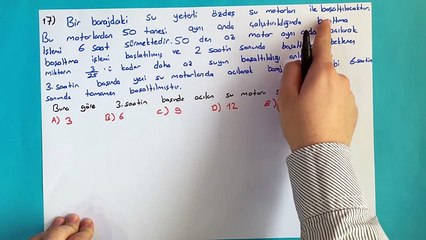 17) Bir barajdaki su yeterli özdeş su motorları ile boşaltılacaktır.
Bu motorlardan 50 tanesi aynı anda çalıştırıldığında
işlemi 6 saat sürmektedir. 50 den az motor aynı açılarak
boşaltma işlemi başlatılmış ve 2 saatin sonunda beklenen
miktarın 3/25 i kadar daha az suyun boşaltıldığı
3. saatin başında yeni su motorlarıda açılarak baraj 6. saatin
sonunda tamamen boşaltılmıştır.
Buna göre 3. saatin başında açılan su motoru
A) 3 B) 6 C) 9 D) 12 E)